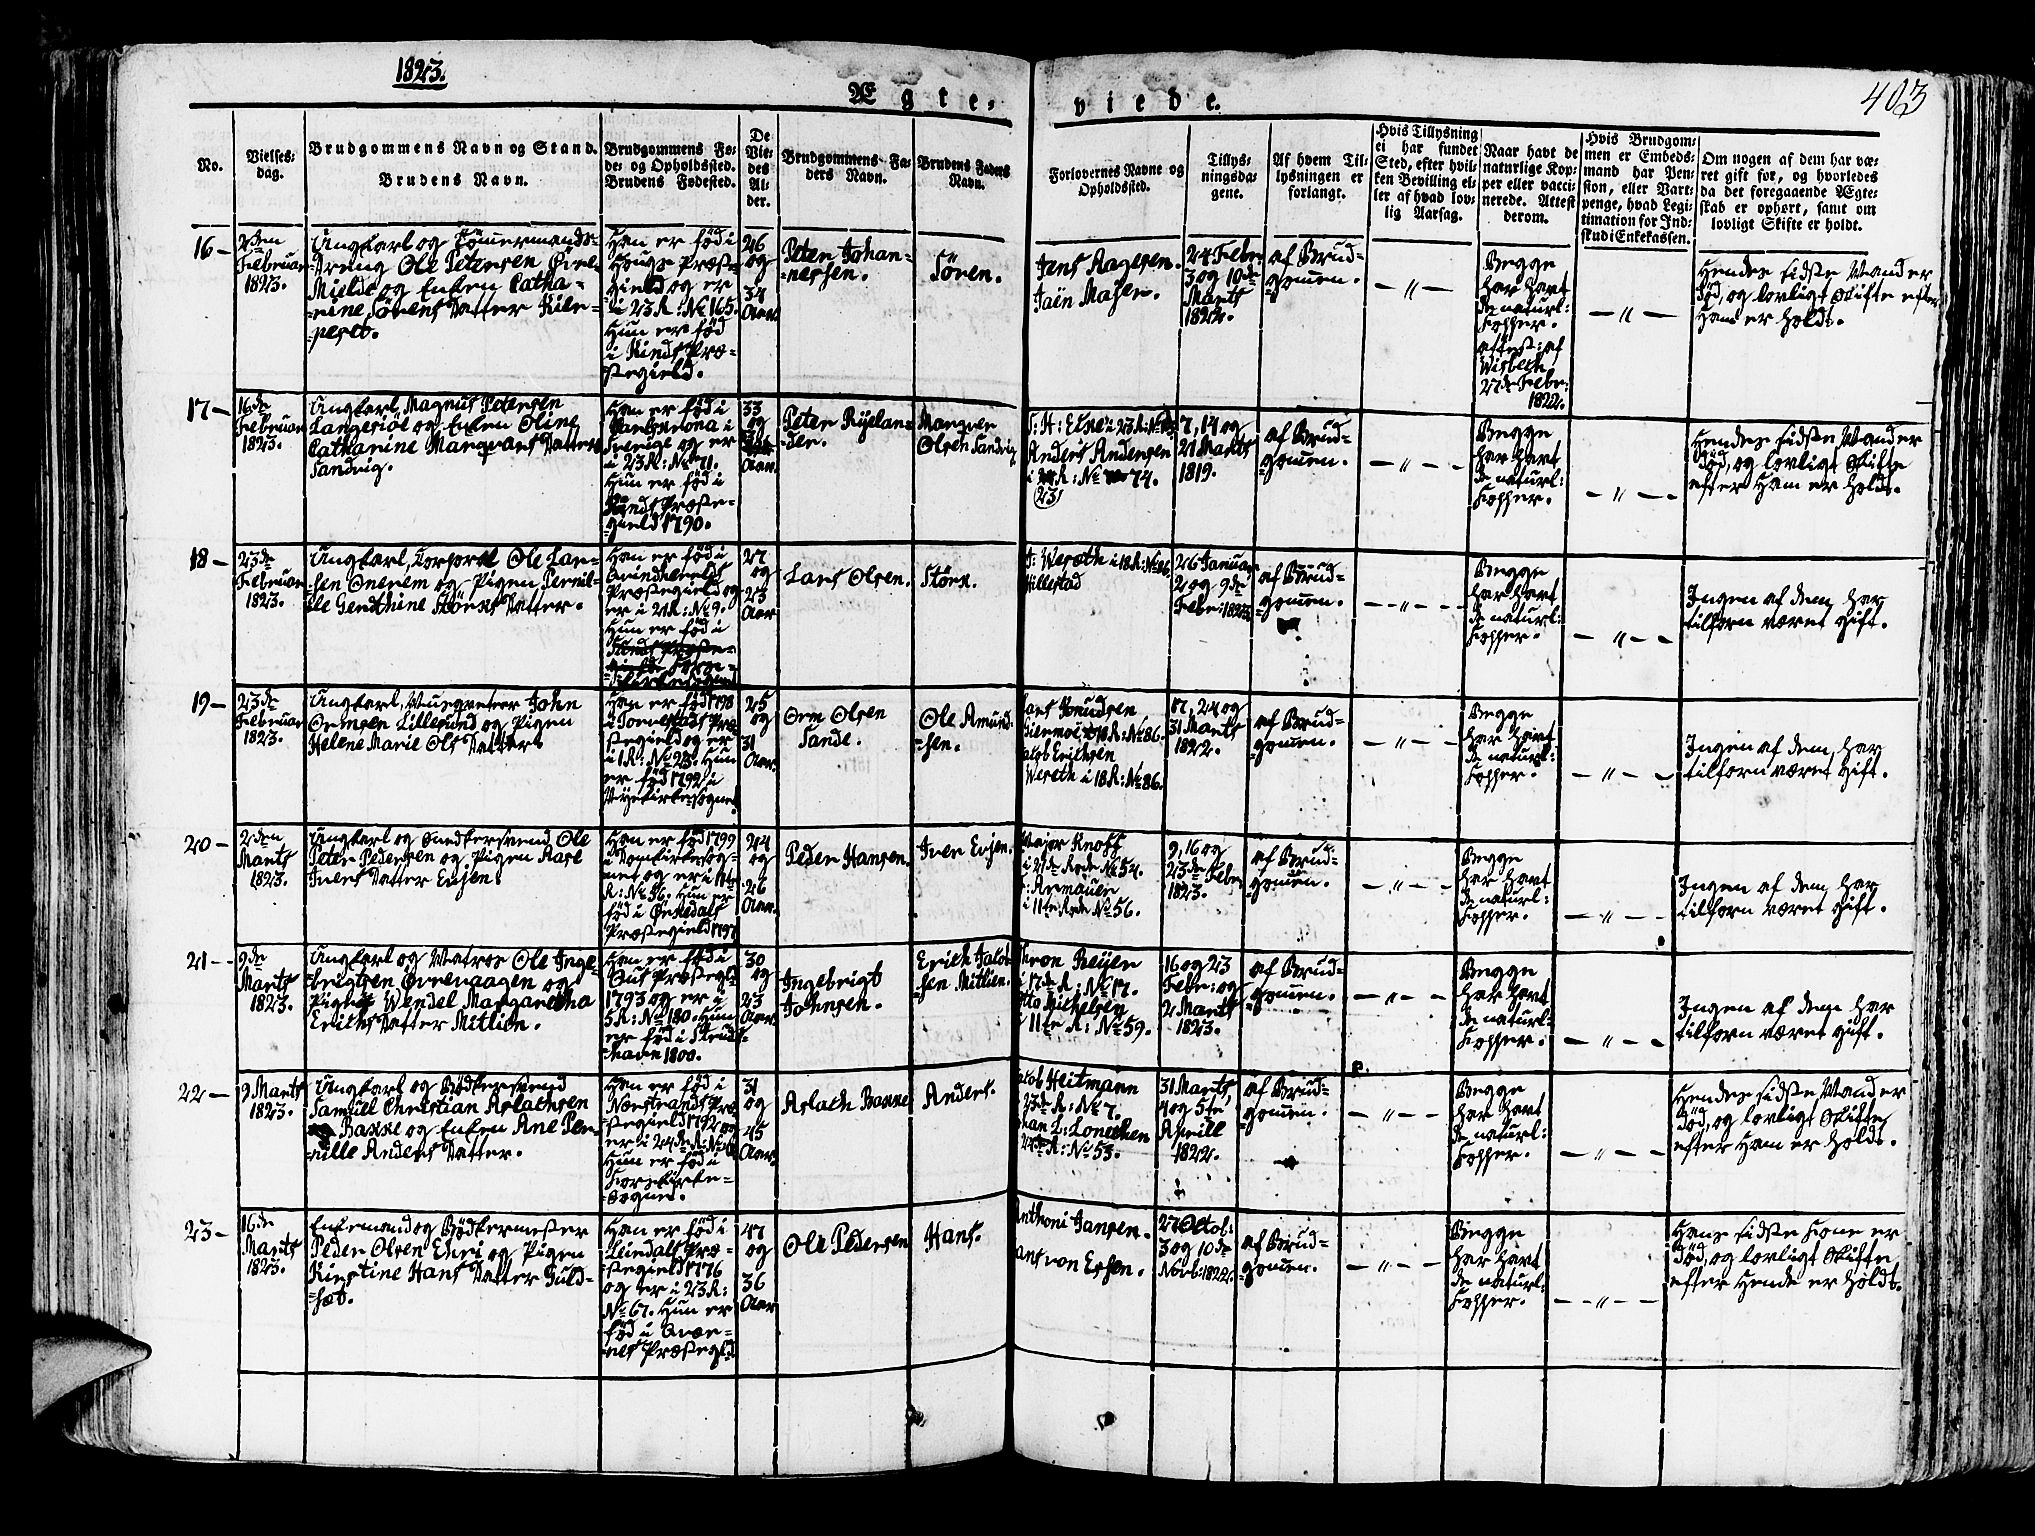 1823.
403
Ægte- viede.
No.
Vielses-
dag.
Brudgommens Navn og Stand.
Brudens Navn.
Brudgommens Fø-
de- og Opholdssted.
Brudens Fødested.
De
Vie-
des
Al-
der.
Brudgommens Fa-
ders Navn.
Brudens Faders
Navn.
Forlovernes Navne og
Opholdssted.
Tillys-
ningsda-
gene.
Af hvem Til-
lysningen er
forlangt.
Hvis Tillysning
ei har fundet
Sted, efter hvil-
ken Bevilling el-
ler af hvad lov-
lig Aarsag.
Naar havt de
naturlige Kop-
per eller vacci-
nerede. Attest
derom.
Hvis Brudgom-
men er Embeds-
mand har Pen-
sion, eller Vart-
penge, hvad Legi-
timation for Ind-
skud i Enkekassen.
Om nogen af dem har væ-
ret gift før, og hvorledes
da det foregaaende Ægte-
skab er ophørt, samt om
lovligt Skifte er holdt.
16-
2den
Februar
1823.
Ungkarl og Tømmermands-
Dreng Ole Petersen Øvre-
Mielde og Enken Catha-
rine Sørens Datter
Han er född i
Hougs Præste-
gield og er
i 23 R: No 165.
Hun er född
i Kinds Præ-
stegield.
26
og
34
Aar.
Peter Johan-
nessen.
Sören.
Jens Aagesen.
24 Febr
3 og 10de
Marts
1822.
af Brud-
gommen.
- " -
Begge
har havt
de naturl:
Kopper.
attest: af
Wisbech
27de Febr:
1822.
- " -
Hendes sidste Mand er
död, og lovligt Skifte efter
Ham er holdt.
17-
16de
Februar
1823.
Ungkarl Magnus Petersen
Langesiöe og Enken Oline
Catharine Marqvars Datter
Sandvig.
Han er född i
Carlskrona i
Sverige og er
i 23 R: No 71.
Hun er född i
Præste-
gield 1790.
33
og
Aar.
Peter Ryelan-
der.
Olsen Sandvig
Anders Andersen
R: No 74.
7, 14 og
21 Marts
1819.
af Brud-
gommen.
- " -
Begge
har havt
de naturl:
Kopper.
- " -
Hendes sidste Mand er
död, og lovligt Skifte
efter Ham er holdt.
18-
23de
Februar
1823.
Ungkarl, Corporal Ole Lar-
sen Onerem og Pigen Pernil-
le Störks Datter.
Han er född i
Qvindherreds
Præstegield og
er i 21 R: No 9.
Hun er född i
27
og
23
Aar
Lars Olsen.
Störk.
Werøth i 18 R: No 86.
Willestad
26 Januar
2 og 9de
Febr: 1823.
af Brud-
gommen.
- " -
Begge
har havt
de naturl:
Kopper.
- " -
Ingen af dem har
tilforn været gift.
19-
23de
Februar
1823.
Ungkarl, Musqveteer John
Ormsen Lillesund og Pigen
Helene Marie Ols Datter
Han er född 1798
i Torvestads Præ-
stegield og er
i 1 R: No 23. Hun
er född 1792 i
Nyekirkesogne.
25
og
31
Aar.
Orm Olsen
Sande.
Ole Amund-
sen.
Knudsen
18 R: No 86.
Jacob Erichsen
Wereth i 18 R: No 86.
17, 24 og
31 Marts
1822.
af Brud-
gommen.
- " -
Begge
har havt
de naturl:
Kopper.
- " -
Ingen af dem, har
tilforn været gift.
20-
2den
Marts
1823.
Ungkarl og Snedkersvend Ole
Peter Pedersen og Pigen Aase
Ivers Datter Evjen.
Han er född 1799
i Domkirkesog-
net og er i 11te
R: No 56. Hun er
född i Ørkedals
Præstegield 1797
24
og
26
Aar.
Peder Hansen.
Iver Evjen.
Major Knoff
i 21de Rode No 54.
Armauer
i 11te Rode No 56.
9, 16 og
23de Febr
1823.
af Brud-
gommen.
- " -
Begge
har havt
de naturl:
Kopper.
- " -
Ingen af dem har
tilforn været gift.
21-
9de
Marts
1823.
Ungkarl og Matros Ole Inge-
brigtsen Øvrevaagen og
Pigen Wendel Margaretha
Erichs Datter Mitlien.
Han er född i
Præstegld
1793 og er i
5 R: No 180. Hun
er född i Skuds-
havn 1800.
30
og
23
Aar.
Ingebrigt
Johnsen.
Erich Jacob-
sen Mitlien.
Thron Beijer
i 17de R: No 17.
Otto Michelsen
i 11te R: No 59.
16 og 23
Febr: og
2 Marts
1823.
af Brud-
gommen.
- " -
Begge
har havt
de naturl:
Kopper.
- " -
Ingen af dem har
tilforn været gift.
22-
9 Marts
1823.
Ungkarl og Bödkersvend
Samuel Christian Aslachsen
Bakke og Enken Ane Per-
nille Anders Datter.
Han er född i
Nerstrands Præ-
stegield 1792 og
er i 24de R: No
Hun er född i
Korskirke-
Sogne.
31
og
45
Aar.
Aslach Bakke
Anders.
Jacob Heitmann
23de R: No 7.
R: No 53.
31 Marts,
4 og 5te
Aprill
1822.
af Brud-
gommen.
- " -
Begge
har havt
de naturl:
Kopper.
- " -
Hendes sidste Mand er
död, og lovligt Skifte
efter Ham er holdt.
23-
16de
Marts
1823.
Enkemand og Bödkermester
Peder Olsen Ehri og Pigen
Kirstine Hans Datter Guld-
sæt.
Han er född i
Leirdals Præ-
stegield 1776
og er i 23 R:
No 67. Hun er
född i
Præstegld
47
og
36
Aar
Ole Pedersen
Hans.
Anthoni Jansen.
von Erpen.
27 Octob:
3 og 10de
Novb: 1822.
af Brud-
gommen.
- " -
Begge
har havt
de naturl:
Kopper.
- " -
Hans sidste Kone er
död, og lovligt Skifte
efter Hende er holdt.